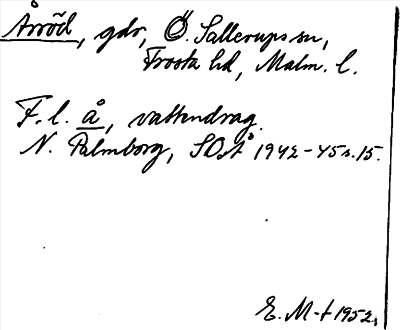 Årröd, gdr, Ö. Sallerups sn,
Frosta hd, Malm. l.
F. l. å, vattendrag.
N. Palmborg, SOÅ 1942-45 s. 15.
E. M-t 1952.